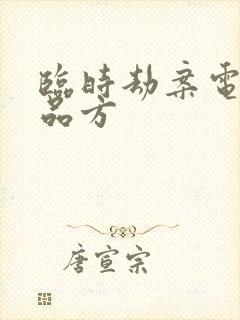 臨時劫案電
品方
唐宣宗